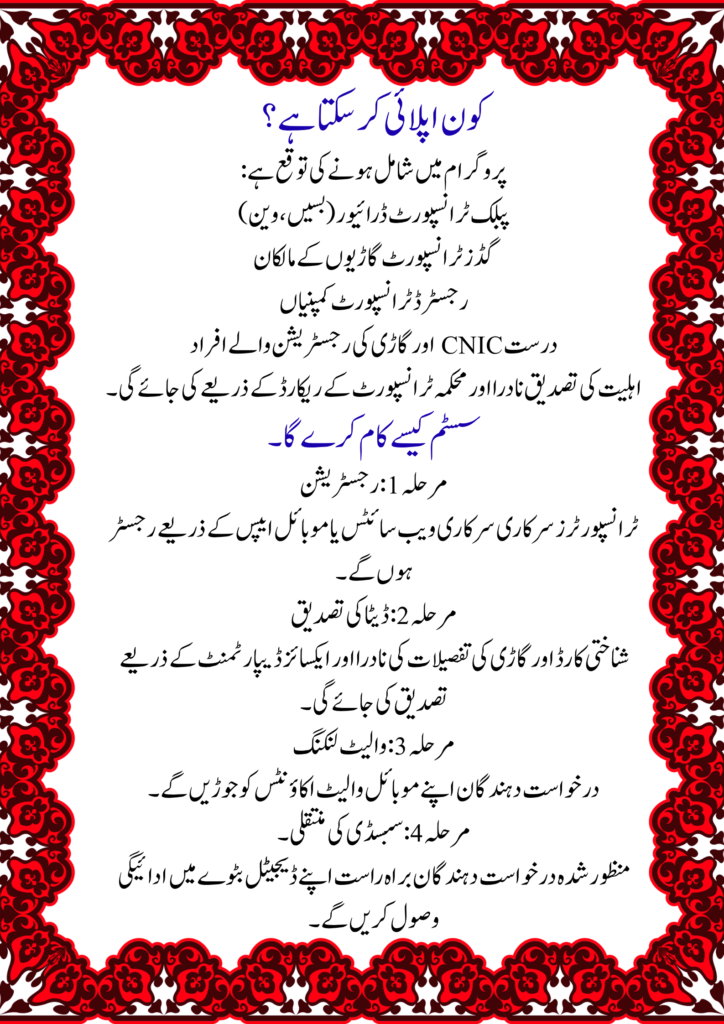 کون اپلائی کر سکتا ہے؟
پروگرام میں شامل ہونے کی توقع ہے:
پبلک ٹرانسپورٹ ڈرائیور (بسیں، وین)
گڈز ٹرانسپورٹ گاڑیوں کے مالکان
رجسٹرڈ ٹرانسپورٹ کمپنیاں
درست CNIC اور گاڑی کی رجسٹریشن والے افراد
اہلیت کی تصدیق نادرا اور محکمہ ٹرانسپورٹ کے ریکارڈ کے ذریعے کی جائے گی۔
سسٹم کیسے کام کرے گا۔
مرحلہ 1: رجسٹریشن
ٹرانسپورٹرز سرکاری سرکاری ویب سائٹس یا موبائل ایپس کے ذریعے رجسٹر
ہوں گے۔
مرحلہ 2: ڈیٹا کی تصدیق
شناختی کارڈ اور گاڑی کی تفصیلات کی نادرا اور ایکسائز ڈیپارٹمنٹ کے ذریعے
تصدیق کی جائے گی۔
مرحلہ 3: والیٹ لنکنگ
درخواست دہندگان اپنے موبائل والیٹ اکاؤنٹس کو جوڑیں گے۔
مرحلہ 4: سبسڈی کی منتقلی۔
منظور شدہ درخواست دہندگان براہ راست اپنے ڈیجیٹل بٹوے میں ادائیگی
وصول کریں گے۔